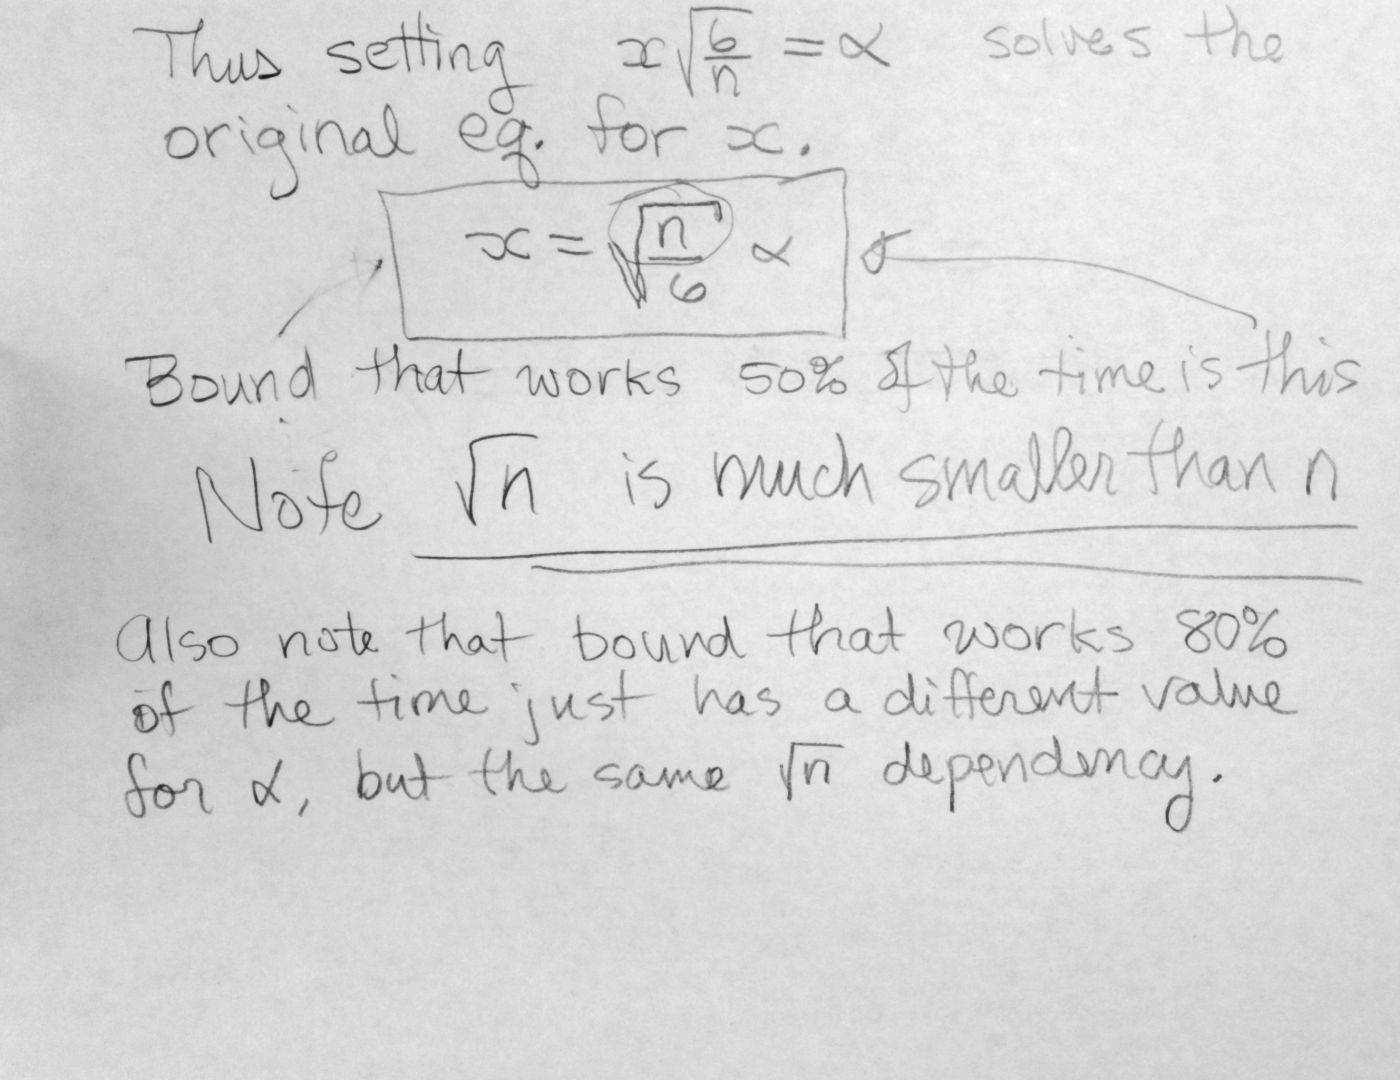 Thus setting x√(6/n) = α solves the
original eq. for x.
x = √(n/6) α
Bound that works 50% of the time is this
Note √n is much smaller than n
Also note that bound that works 80%
of the time just has a different value
for α, but the same √n dependency.